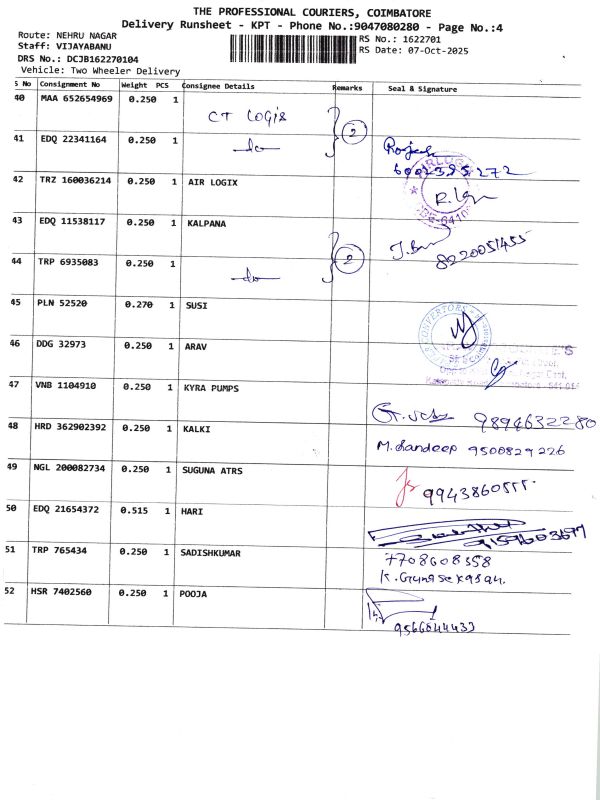 THE PROFESSIONAL COURIERS, COIMBATORE
Delivery Runsheet - KPT - Phone No.:9047080280 - Page No.:4
Route: NEHRU NAGAR
RS No.: 1622701
Staff: VIJAYABANU
RS Date: 07-Oct-2025
DRS No.: DCJB162270104
Vehicle: Two Wheeler Delivery
S No Consignment No Weight PCS Consignee Details Remarks Seal & Signature
40 MAA 652654969 0.250 1 CT Logis
2
41 EDQ 22341164 0.250 1 do Rajesh
6002395272
42 TRZ 160036214 0.250 1 AIR LOGIX
43 EDQ 11538117 0.250 1 KALPANA
8220051455
2
44 TRP 6935083 0.250 1 do
45 PLN 52520 0.270 1 SUSI
46 DDG 32973 0.250 1 ARAV
47 VNB 1104910 0.250 1 KYRA PUMPS
9894632280
48 HRD 362902392 0.250 1 KALKI M. Sandeep 9500829226
49 NGL 200082734 0.250 1 SUGUNA ATRS
9943860555
50 EDQ 21654372 0.515 1 HARI
9159603677
51 TRP 765434 0.250 1 SADISHKUMAR 7708608358
K. Gunasekaran.
52 HSR 7402560 0.250 1 POOJA
9566844433